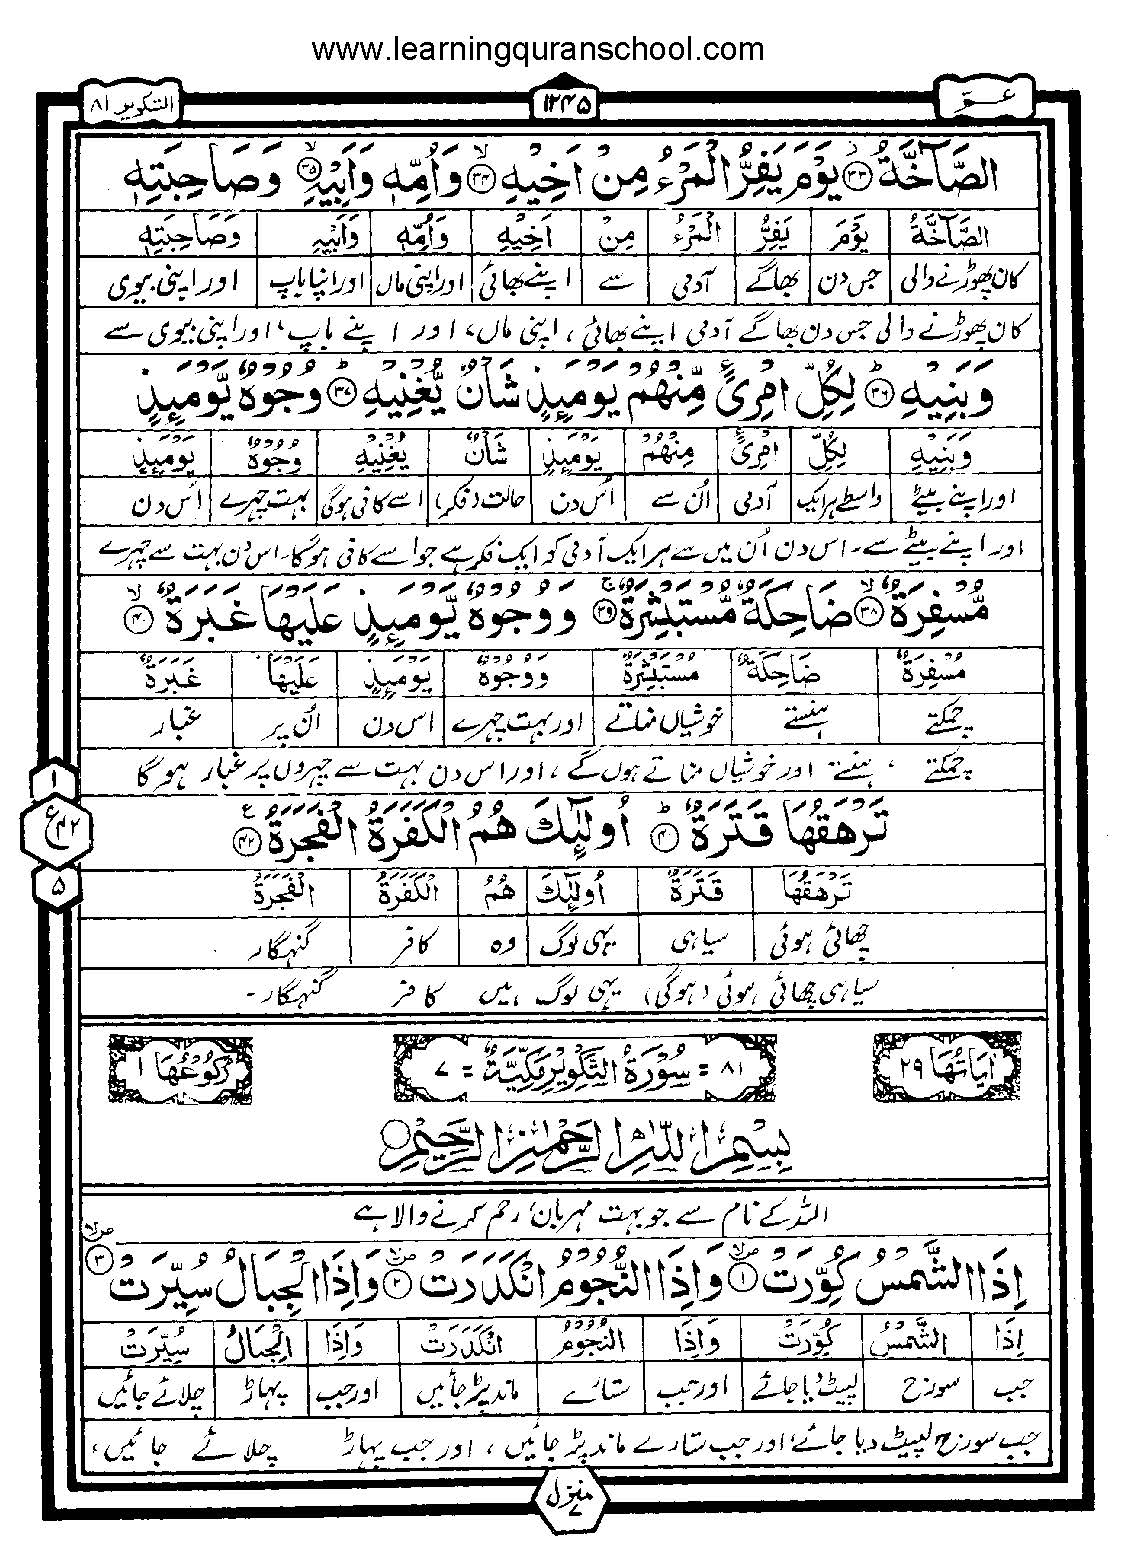 www.learningquranschool.com
التكوير ٨١
١٢٤٥
عـــمّ
الصَّآخَّةُ ﴿٣٣﴾ يَوْمَ يَفِرُّ الْمَرْءُ مِنْ اَخِيْهِ ﴿٣٤﴾ وَاُمِّهٖ وَاَبِيْهِ ﴿٣٥﴾ وَصَاحِبَتِهٖ
الصَّآخَّةُ يَوْمَ يَفِرُّ الْمَرْءُ مِنْ اَخِيْهِ وَاُمِّهٖ وَاَبِيْهِ وَصَاحِبَتِهٖ
کان پھوڑنے والی جس دن بھاگے آدمی سے اپنے بھائی اور اپنی ماں اور اپنا باپ اور اپنی بیوی
کان پھوڑنے والی جس دن بھاگے آدمی اپنے بھائی، اپنی ماں، اور اپنے باپ، اور اپنی بیوی سے
وَبَنِيْهِ ﴿٣٦﴾ لِكُلِّ امْرِئٍ مِّنْهُمْ يَوْمَىِٕذٍ شَاْنٌ يُّغْنِيْهِ ﴿٣٧﴾ وُجُوْهٌ يَّوْمَىِٕذٍ
وَبَنِيْهِ لِكُلِّ امْرِئٍ مِنْهُمْ يَوْمَىِٕذٍ شَاْنٌ يُغْنِيْهِ وُجُوْهٌ يَوْمَىِٕذٍ
اور اپنے بیٹے واسطے ہر ایک آدمی اُن سے اُس دن حالت (فکر) اسے کافی ہوگی بہت چہرے اُس دن
اور اپنے بیٹے سے۔ اس دن اُن میں سے ہر ایک آدمی کو ایک فکر ہے جو اسے کافی ہوگا۔ اس دن بہت سے چہرے
مُّسْفِرَةٌ ﴿٣٨﴾ ضَاحِكَةٌ مُّسْتَبْشِرَةٌ ﴿٣٩﴾ وَوُجُوْهٌ يَّوْمَىِٕذٍ عَلَيْهَا غَبَرَةٌ ﴿٤٠﴾
مُسْفِرَةٌ ضَاحِكَةٌ مُسْتَبْشِرَةٌ وَوُجُوْهٌ يَوْمَىِٕذٍ عَلَيْهَا غَبَرَةٌ
چمکتے ہنستے خوشیاں مناتے اور بہت چہرے اس دن اُن پر غبار
چمکتے، ہنستے اور خوشیاں مناتے ہوں گے، اور اس دن بہت سے چہروں پر غبار ہوگا
١
ع ٤٢
٥
تَرْهَقُهَا قَتَرَةٌ ﴿٤١﴾ اُولٰٓىِٕكَ هُمُ الْكَفَرَةُ الْفَجَرَةُ ﴿٤٢﴾
تَرْهَقُهَا قَتَرَةٌ اُولٰٓىِٕكَ هُمُ الْكَفَرَةُ الْفَجَرَةُ
چھائی ہوئی سیاہی یہی لوگ وہ کافر گنہگار
سیاہی چھائی ہوئی (ہوگی) یہی لوگ ہیں کافر گنہگار۔
اٰيَاتُهَا ٢٩
٨١ = سُوْرَةُ التَّكْوِيْرِ مَكِّيَّةٌ = ٧
رُكُوْعُهَا ١
بِسْمِ اللّٰهِ الرَّحْمٰنِ الرَّحِيْمِ
اللہ کے نام سے جو بہت مہربان، رحم کرنے والا ہے
اِذَا الشَّمْسُ كُوِّرَتْ ﴿١﴾ وَاِذَا النُّجُوْمُ انْكَدَرَتْ ﴿٢﴾ وَاِذَا الْجِبَالُ سُيِّرَتْ ﴿٣﴾
اِذَا الشَّمْسُ كُوِّرَتْ وَاِذَا النُّجُوْمُ انْكَدَرَتْ وَاِذَا الْجِبَالُ سُيِّرَتْ
جب سورج لپیٹ دیا جائے اور جب ستارے ماند پڑ جائیں اور جب پہاڑ چلائے جائیں
جب سورج لپیٹ دیا جائے، اور جب ستارے ماند پڑ جائیں، اور جب پہاڑ چلائے جائیں،
منزل ٧